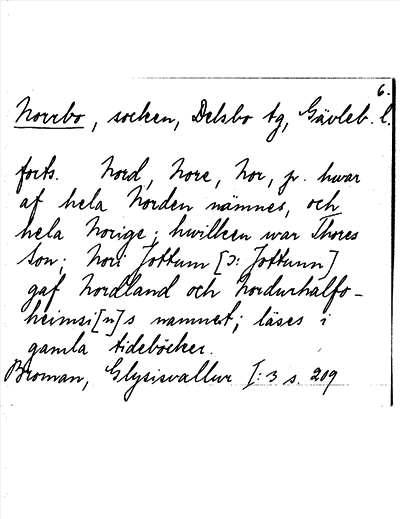 6.
Norrbo, socken, Delsbo tg, Gävleb. l.
forts. Nord, Nore, Nor, p. hwar
af hela Norden nämnes, och
hela Norige; hwilken war Thores
Son; Nor: Jottum [ɔ: Jottunn]
gaf Nordland och Nordurhalfo-
heimsi[n]s namnet; läses i
gamla tideböcker.
Broman, Glysisvallur I: 3 s. 209